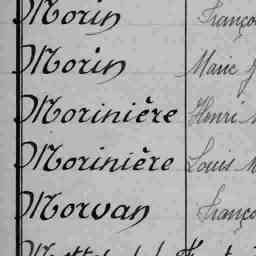 Morin Franço
Morin Marie
Morinière Henri
Morinière Louis M
Morvan Franço